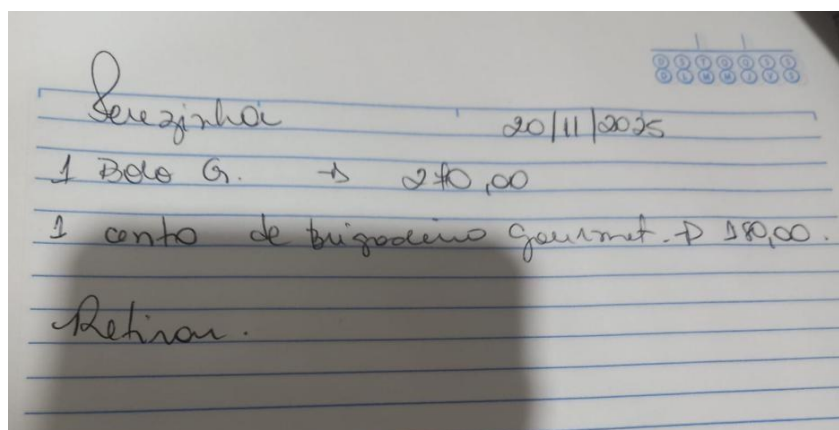 Terezinha 20/11/2025
1 Bolo G. → 270,00
1 cento de brigadeiro gourmet. → 180,00.
Retirar.